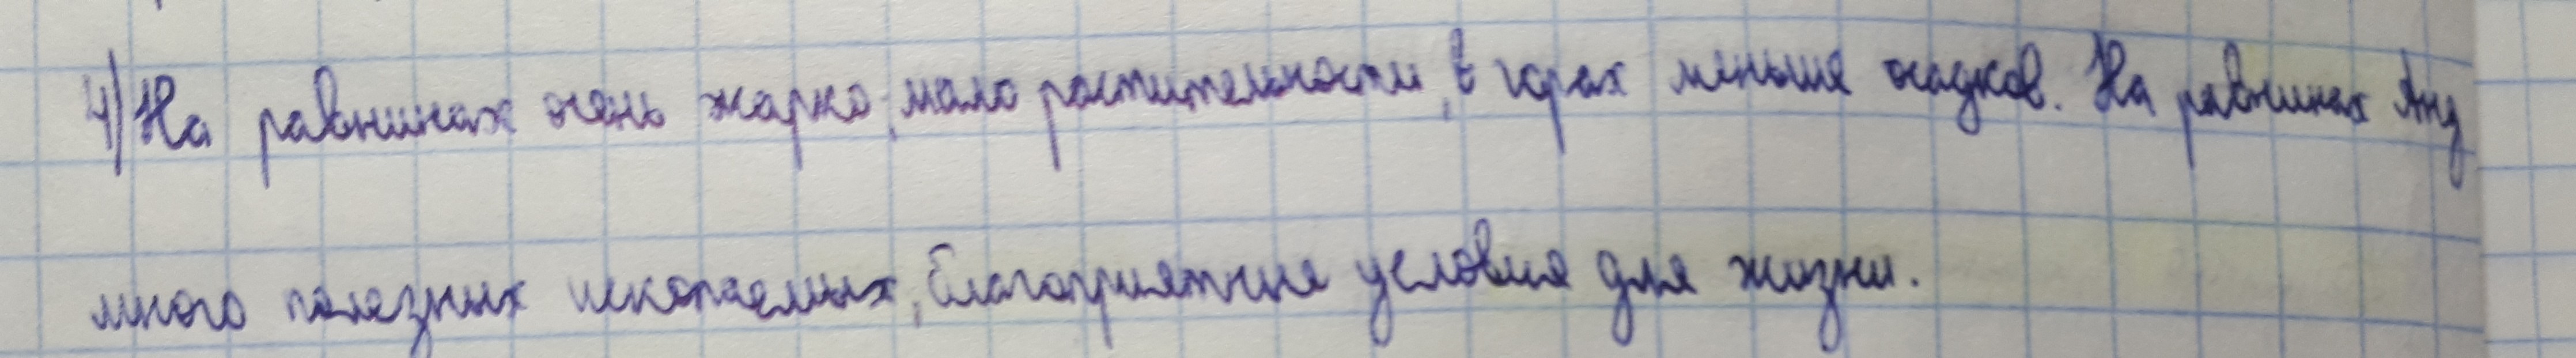 4) На равнинах очень жарко, мало растительности, в горах меньше осадков. На равнинах Анд
много полезных ископаемых, благоприятные условия для жизни.